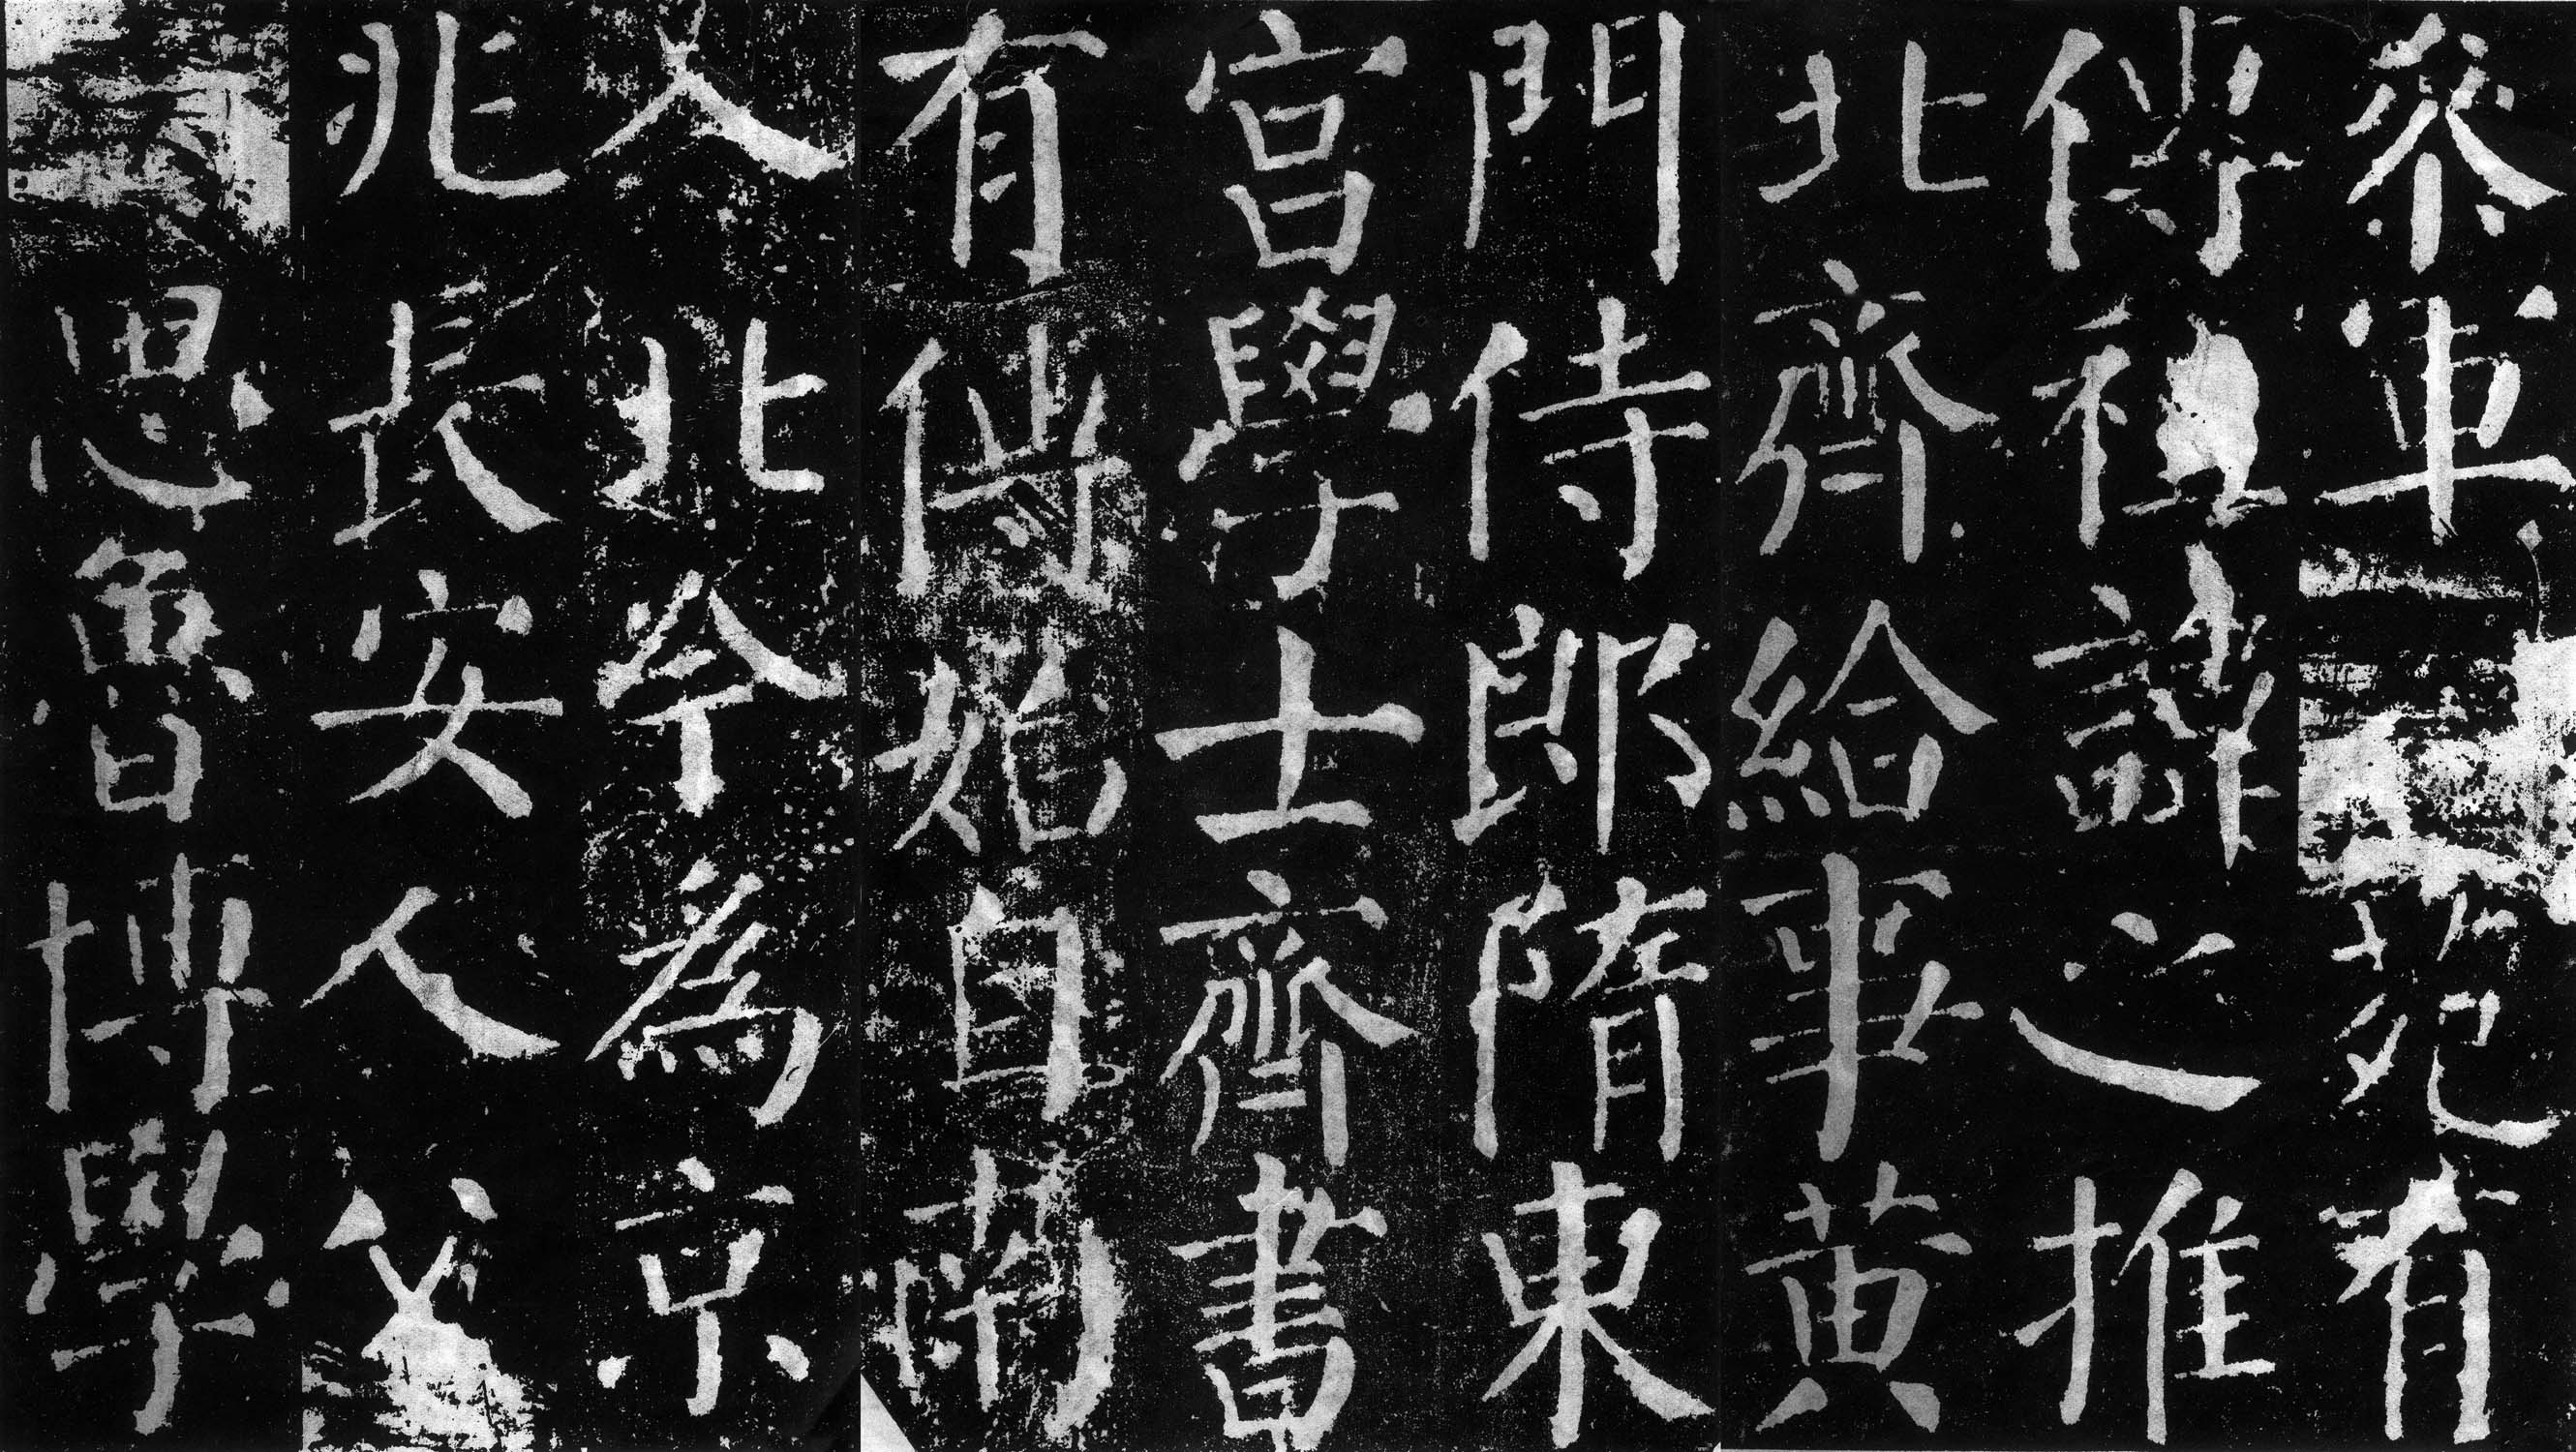 參軍苑有
傳祖諱之推
北齊給事黃
門侍郎隋東
宮學士齊書
有傳始自南
入北今為京
兆長安人父
思魯博學